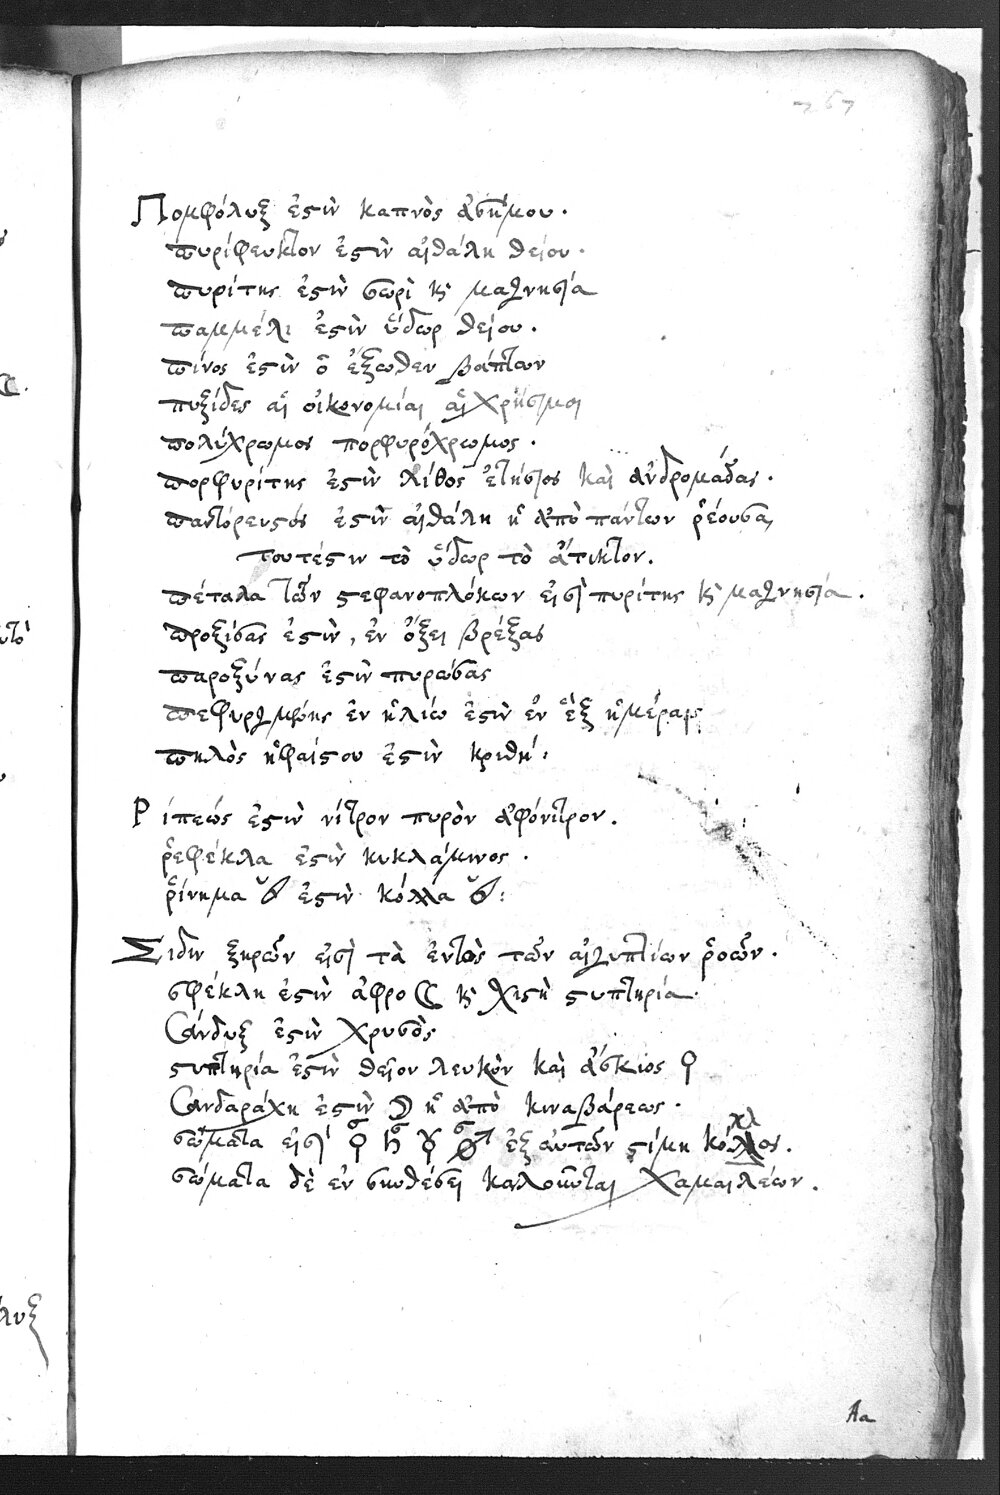 767
Πομφόλυξ ἐστὶν καπνὸς ἀσήμου.
πυρίφευκτον ἐστὶν αἰθάλη θείου.
πυρίτης ἐστὶν σωρὶ κ̀ μαγνησία
παμμέλι ἐστὶν ὕδωρ θείου.
πίνος ἐστὶν ὁ ἔξωθεν βάπτων
πυξίδες αἱ οἰκονομίαι αἱ χρήσιμοι
πολύχρωμος πορφυρόχρωμος.
πορφυρίτης ἐστὶν λίθος ἐτήσιος καὶ ἀνδρομάδας.
παντόρευστος ἐστὶν αἰθάλη ἡ ἀπὸ πάντων ῥέουσα,
τουτέστιν τὸ ὕδωρ τὸ ἄτικτον.
πέταλα τῶν στεφανοπλόκων εἰσὶ πυρίτης κ̀ μαγνησία.
προξίσας ἐστὶν, ἐν ὄξει βρέξας
παροξύνας ἐστὶν πυρώσας
ἐν ἡλίῳ ἐστὶν ἐν ἓξ ἡμέραις
πηλὸς ἡφαίστου ἐστὶν κριθή:
Ῥίπεώς ἐστὶν νίτρον πυρὸν ἀφόνιτρον.
ῥεφέκλα ἐστὶν κυκλάμινος.
ῥίνημα ἐστὶν κόλλα
Σιδιν ξηρῶν εἰσὶ τὰ ἐντὸς τῶν αἰγυπτίων ῥοῶν.
σφέκλη ἐστὶν ἀφρο ☾ κ̀ στυπτηρία.
Σάνδυξ ἐστὶν χρυσὸς
στυπτηρία ἐστὶν θεῖον λευκὸν καὶ ἄσκιος ♀
Σανδαράχη ἐστὶν ☽ ἡ ἀπὸ κιναβάρεως.
σώματα εἰσὶ ♀ ♄ ♉ ♂ ἐξ αὐτῶν στίμη
σώματα δὲ ἐν συνθέσει καλοῦνται χαμαιλέων.
Aa